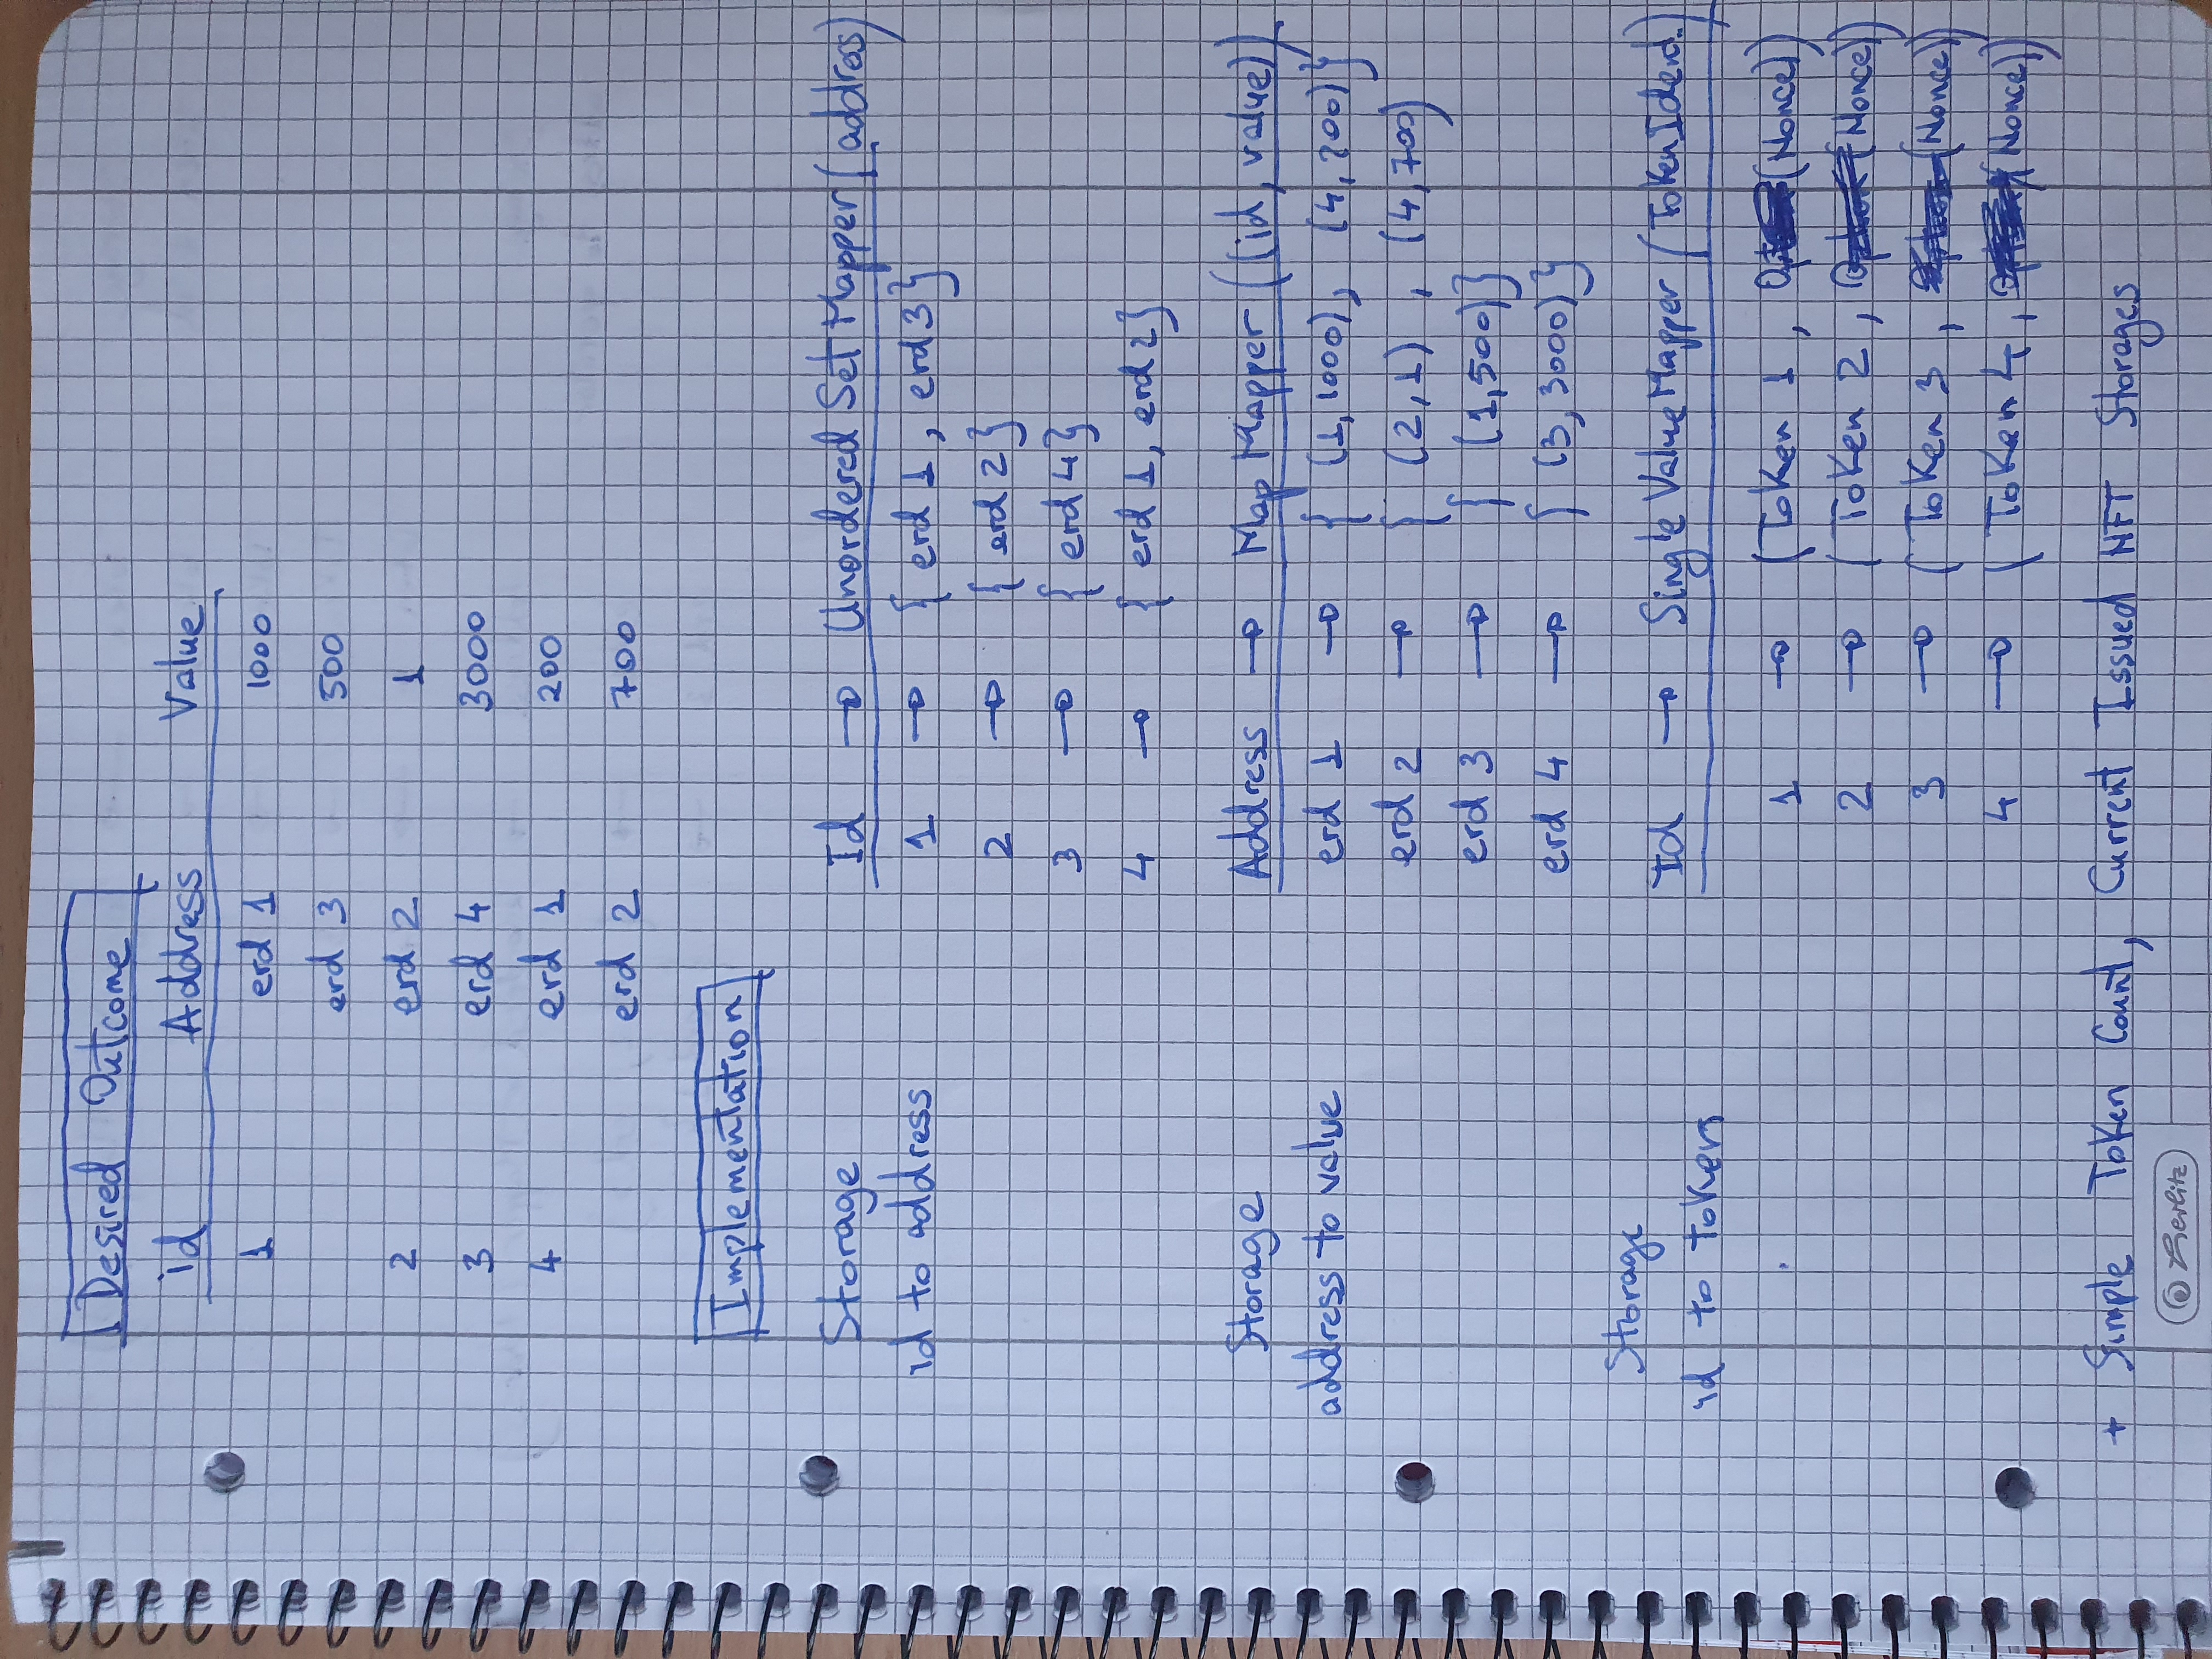 Desired Outcome
id Address Value
1 erd 1 1000
erd 3 500
2 erd 2 1
3 erd 4 3000
4 erd 1 200
erd 2 700
Implementation
Storage Id → Unordered Set Mapper (address)
id to address 1 → { erd 1, erd 3}
2 → { erd 2}
3 → { erd 4}
4 → { erd 1, erd 2}
Storage Address → Map Mapper ((id, value))
address to value erd 1 → { (1,1000), (4,200)}
erd 2 → { (2,1) , (4,700)
erd 3 → { (1,500)}
erd 4 → { (3,3000)}
Storage
Id → Single Value Mapper (
id to token
1 → (Token 1, (Nonce))
2 → (Token 2, (Nonce))
3 → (Token 3, (Nonce))
4 → (Token 4, (Nonce))
+ Simple Token Count, Current Issued NFT Storages
Herlitz